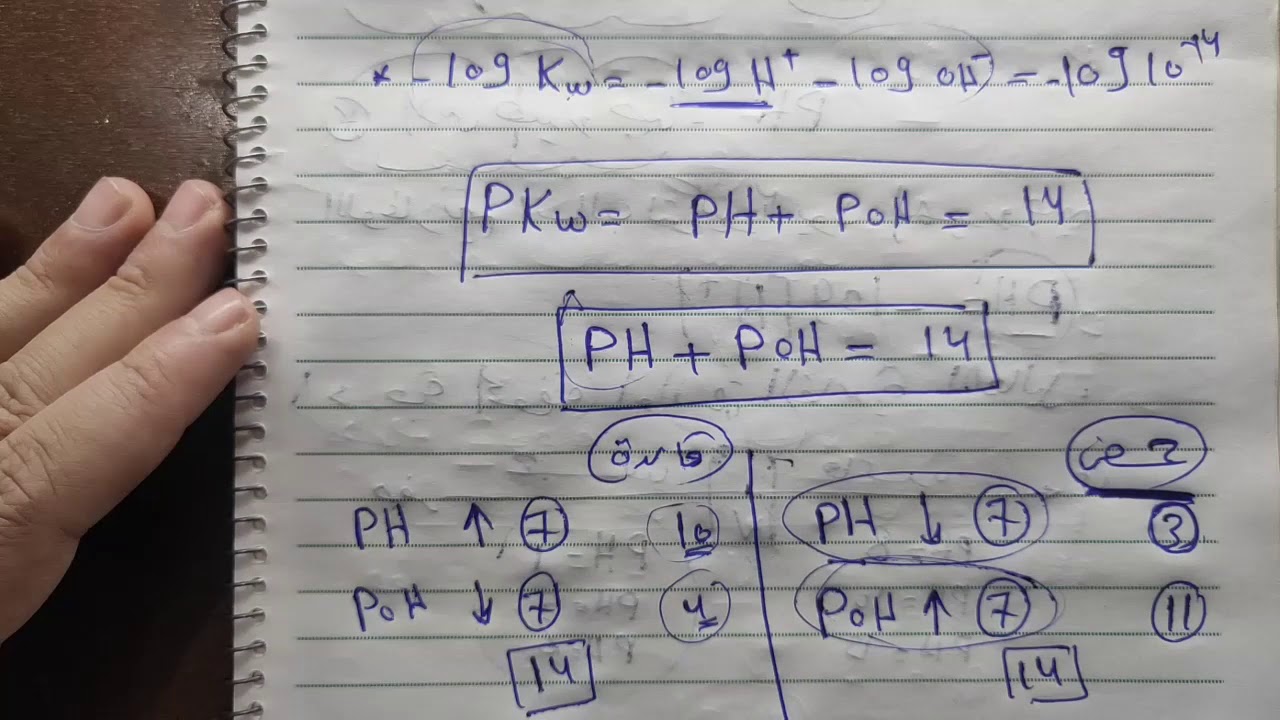 * -log Kw = -log H⁺ - log OH⁻ = -log 10⁻¹⁴
PKw = PH + POH = 14
PH + POH = 14
حمضى
PH ↑ 7 10 PH ↓ 7 3
POH ↓ 7 4 POH ↑ 7 11
14 14